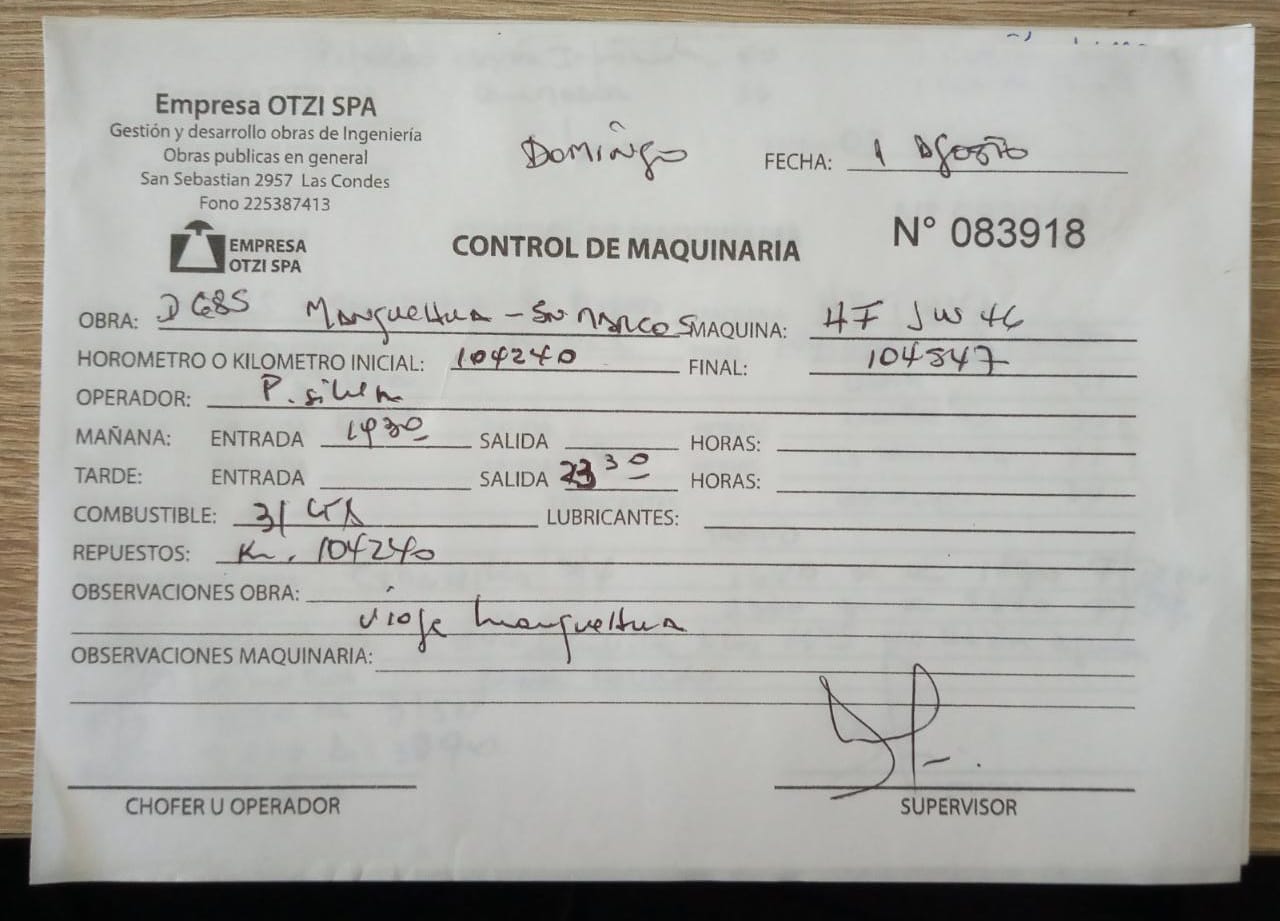 Empresa OTZI SPA
Gestión y desarrollo obras de Ingeniería
Obras publicas en general
San Sebastian 2957 Las Condes
Fono 225387413
Domingo
FECHA: 1 Agosto
EMPRESA
OTZI SPA
CONTROL DE MAQUINARIA
N° 083918
OBRA: Manquehua - Sn Marcos MAQUINA: HF JW 46
HOROMETRO O KILOMETRO INICIAL: 104240 FINAL: 104547
OPERADOR: P. silva
MAÑANA: ENTRADA 1430 SALIDA HORAS:
TARDE: ENTRADA SALIDA 23 30 HORAS:
COMBUSTIBLE: LUBRICANTES:
REPUESTOS: Km. 104240
OBSERVACIONES OBRA:
viaje Manquehua
OBSERVACIONES MAQUINARIA:
CHOFER U OPERADOR
SUPERVISOR